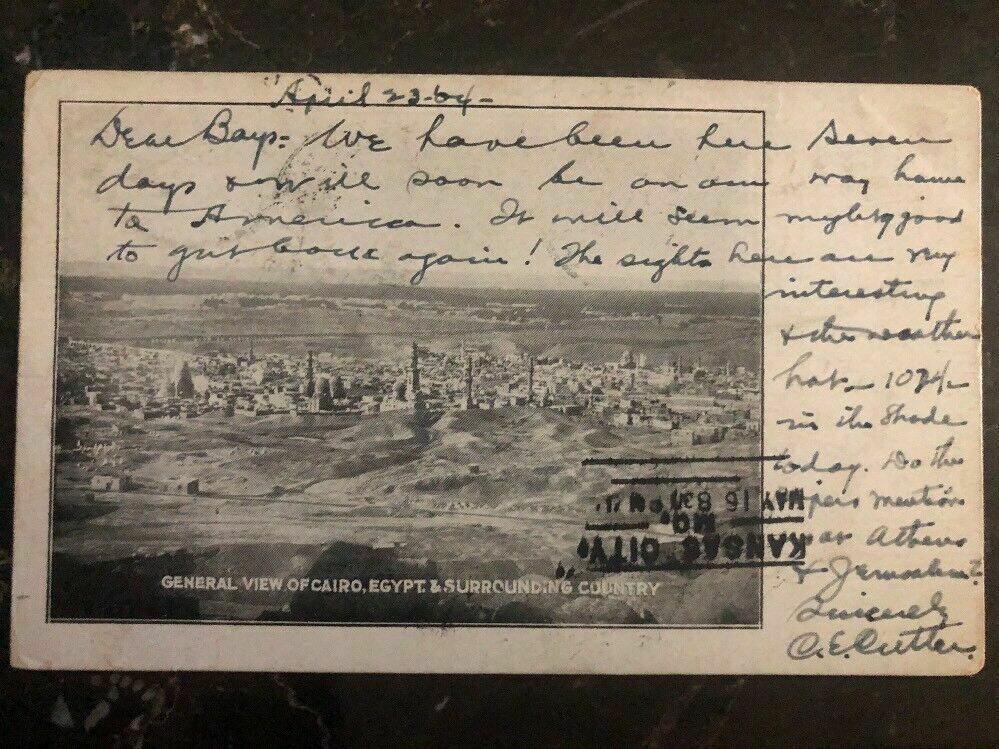 April 23-04-
Dear Boys- We have been here seven
days & will soon be on our way home
to America. It will seem mighty good
to get back again! The sights here are very
interesting
& the weather
hot - 102/-
in the shade
today. Do the
papers mention
Athens
& Jerusalem?
Sincerely
C.E. Cutler.
KANSAS CITY
MO.
MAY 16 830
GENERAL VIEW OF CAIRO, EGYPT. & SURROUNDING COUNTRY